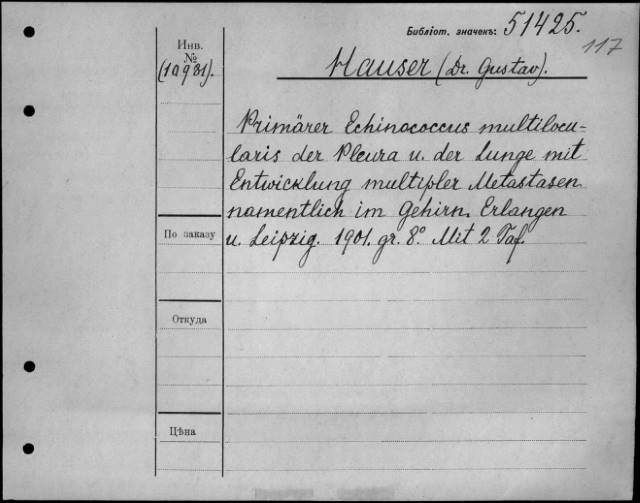 Библіот. значекъ: 51425.
117
Инв.
№
(10931).
Hauser (Dr. Gustav).
Primärer Echinococcus multilocu-
laris der Pleura u. der Lunge mit
Entwicklung multipler Metastasen
namentlich im Gehirn. Erlangen
u. Leipzig. 1901. gr. 8° Mit 2 Taf.
По заказу
Откуда
Цѣна